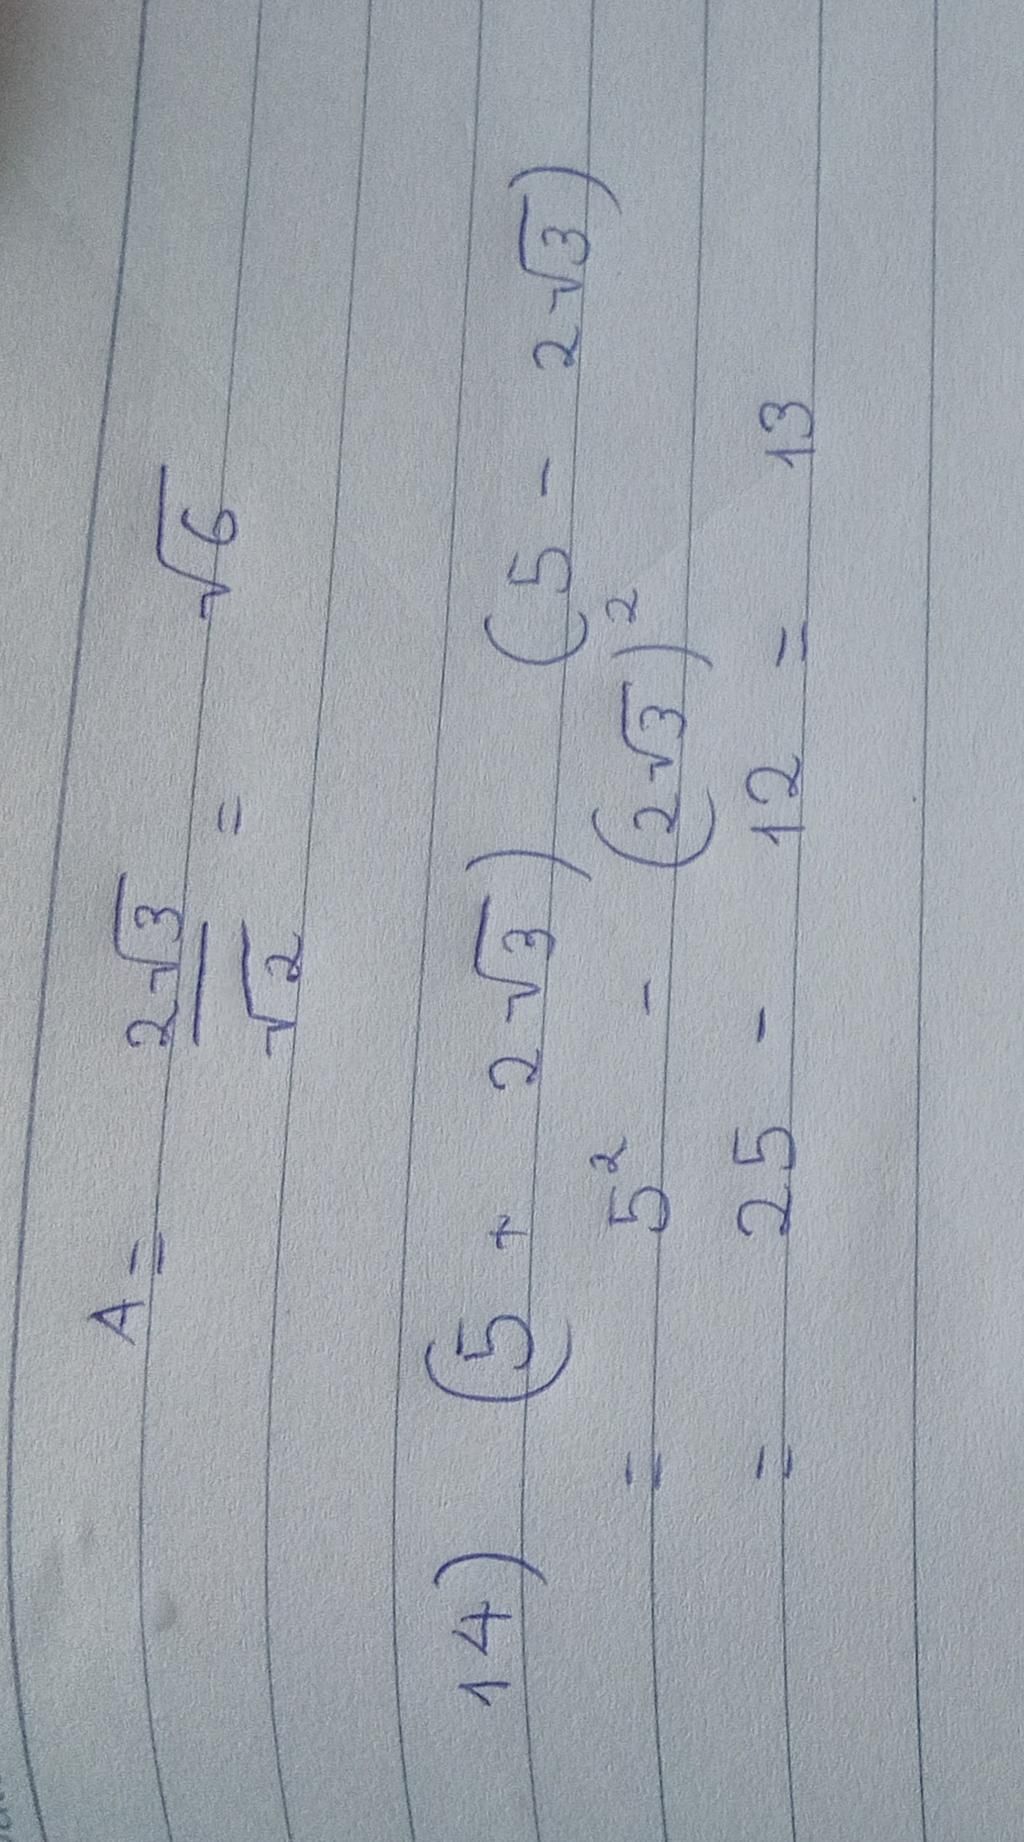 A = 2√3/√2 = √6
14) (5 + 2√3) (5 - 2√3)
= 5² - (2√3)²
= 25 - 12 = 13